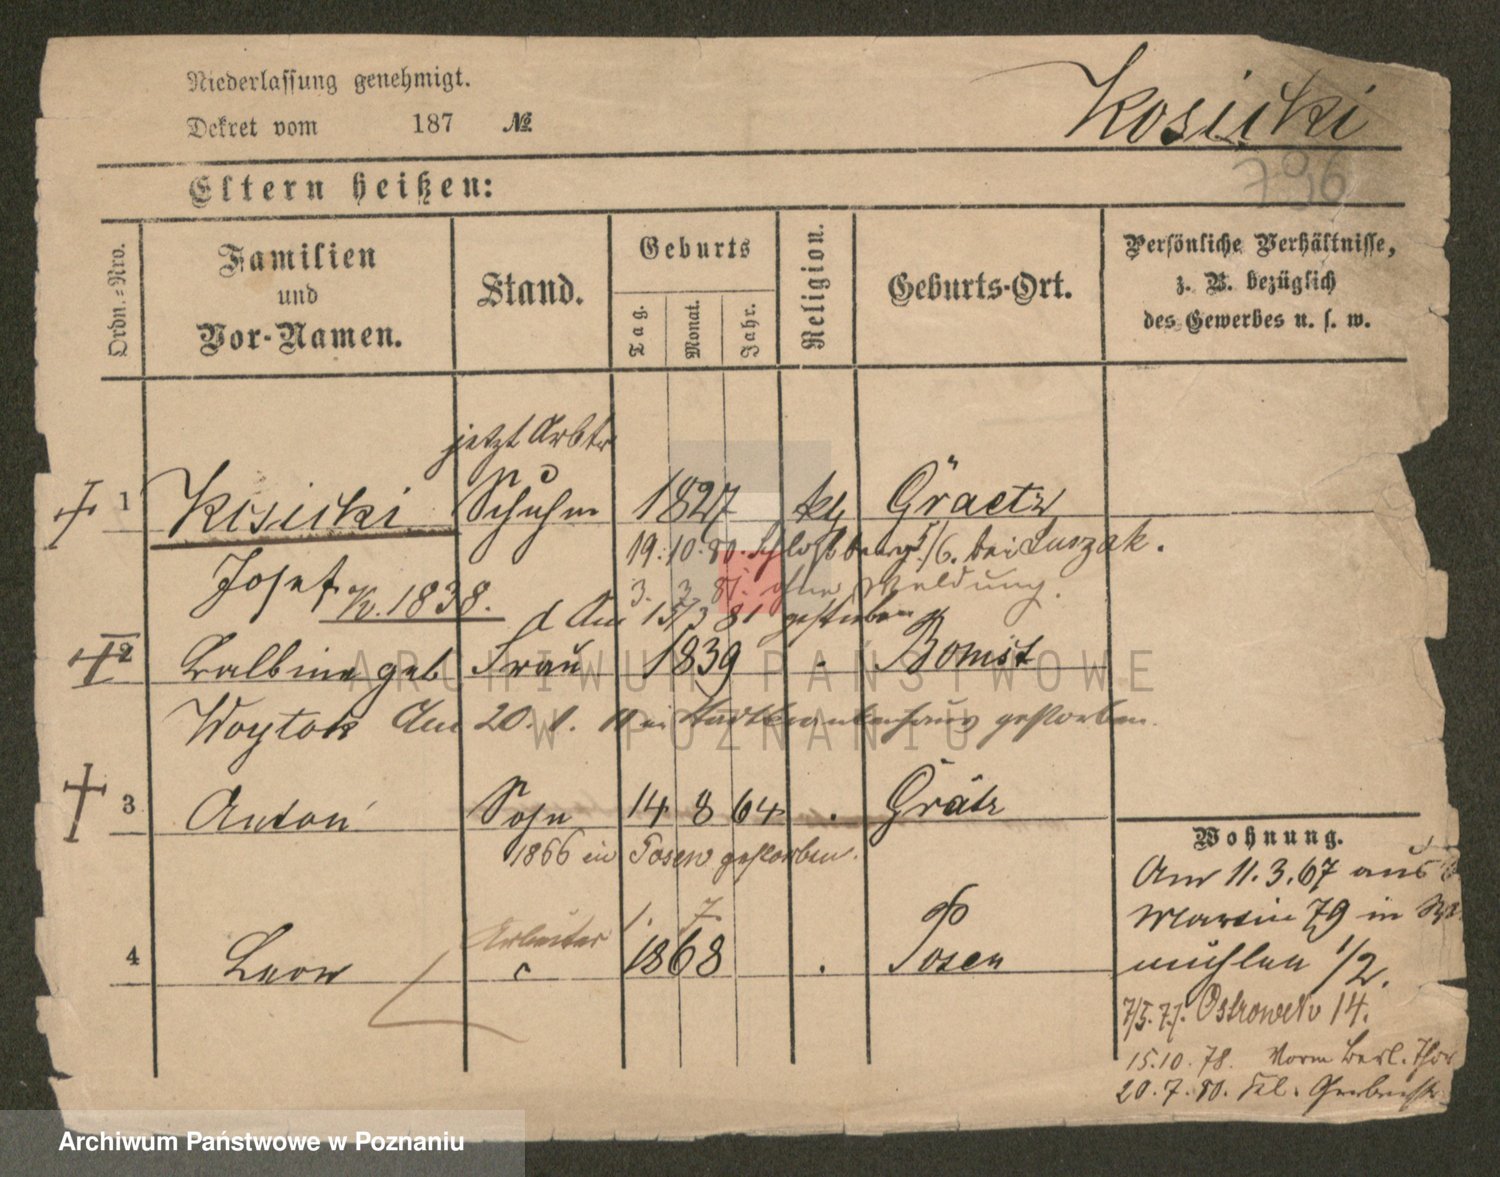 Niederlassung genehmigt.
Dekret vom 187 №
Kosicki
796
Eltern heißen:
Ordn.-Nro.
Familien und Vor-Namen.
Stand.
Geburts
Tag.
Monat.
Jahr.
Religion.
Geburts-Ort.
Persönliche Verhältnisse,
z. B. bezüglich
des Gewerbes u. s. w.
jetzt Arbtr
1 Kosicki Schuhm 1827 kth Graetz
19.10.80. Schloßberg 5/6. bei Luszak.
Josef 1838. 3. 3. 81. ohne Meldung.
Am 15/3 81 gestorben
2 Balbina geb Frau 1839 . Bomst
Woytok Am 20. 1. 11 im Stadtkrankenhaus gestorben.
3 Anton Sohn 14 8 64 . Grätz
1866 in Posen gestorben.
Arbeiter 1. 7.
4 Leon " 1868 . Posen
Wohnung.
Am 11.3.67 aus
Martin 79 in
muhlen 1/2.
7/5.77. Ostrowek 14.
15.10.78. Vorm Berl. Thor
20.7.80. Kl. Gerberstr.
ARCHIWUM PAŃSTWOWE
W POZNANIU
Archiwum Państwowe w Poznaniu